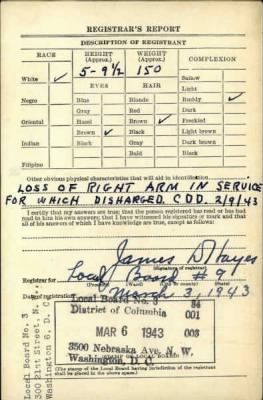 REGISTRAR'S REPORT
DESCRIPTION OF REGISTRANT
RACE HEIGHT (Approx.) WEIGHT (Approx.) COMPLEXION
White ✓ 5-9½ 150 Sallow
EYES HAIR Light
Negro Blue Blonde Ruddy ✓
Gray Red Dark
Oriental Hazel Brown ✓ Freckled
Brown ✓ Black Light brown
Indian Black Gray Dark brown
Bald Black
Filipino
Other obvious physical characteristics that will aid in identification
LOSS OF RIGHT ARM IN SERVICE
FOR WHICH DISHARGED. CDD. 2/9/43
I certify that my answers are true; that the person registered has read or has had
read to him his own answers; that I have witnessed his signature or mark and that
all of his answers of which I have knowledge are true, except as follows:
James D Hayes
(Signature of registrar)
Registrar for Local Board #9
Date of registration March 3, 1943
Local Board No. 9 84
District of Columbia 001
MAR 6 1943 003
3500 Nebraska Ave. N. W.
Washington, D. C.
(STAMP OF LOCAL BOARD)
(The stamp of the Local Board having jurisdiction of the registrant
shall be placed in the above space.)
Local Board No. 3
300 21st Street, N.
Washington 6, D. C.